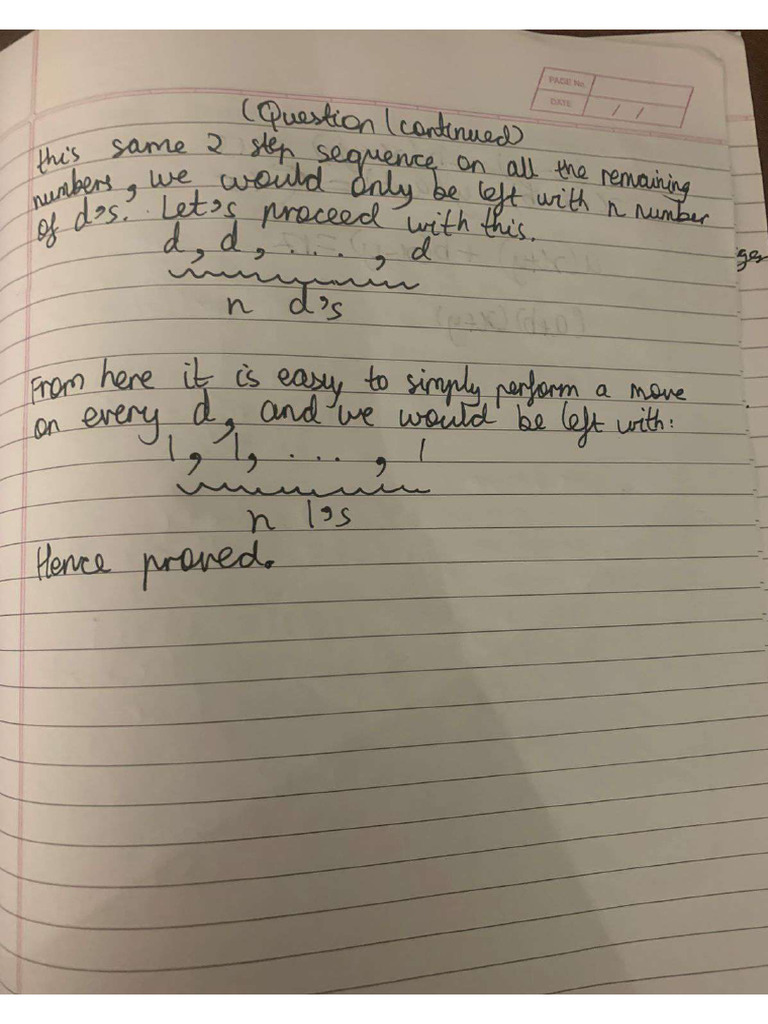 PAGE No.
DATE / /
(Question 1 continued)
this same 2 step sequence on all the remaining
numbers, we would only be left with n number
of d's. Let's proceed with this.
d, d, ..., d
n d's
From here it is easy to simply perform a move
on every d, and we would be left with:
1, 1, ..., 1
n 1's
Hence proved.